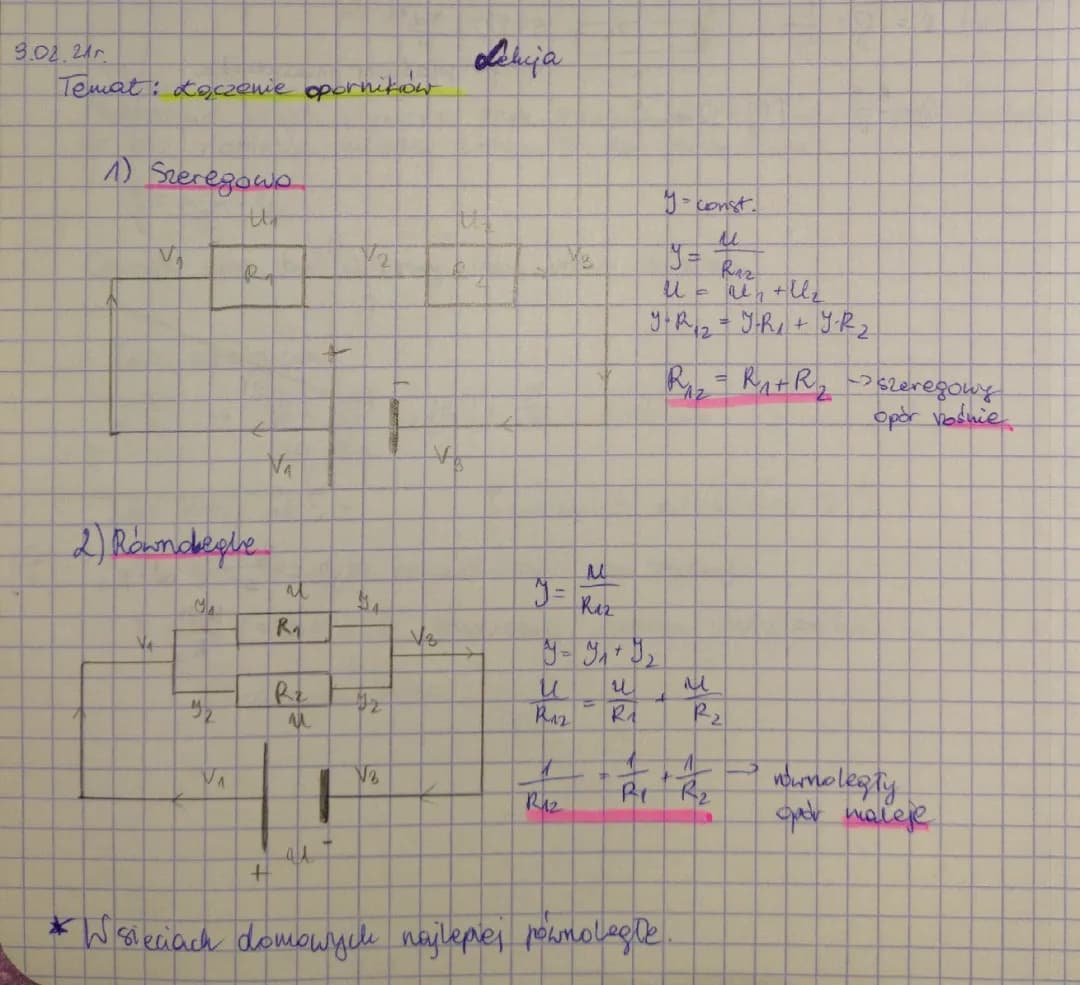 9.02.21r.
Lekcja
Temat: Łączenie oporników
1) Szeregowo
U1 U2
V1 R1 V2 R2 V3
+ -
V1 V3
Y = const.
Y = U/R12
U = U1 + U2
Y·R12 = Y·R1 + Y·R2
R12 = R1 + R2 → szeregowy
opór rośnie
2) Równolegle
U
Y1 R1 Y1
V1 V3
Y2 R2 Y2
U
V1 V3
U -
+
Y = U/R12
Y = Y1 + Y2
U/R12 = U/R1 + U/R2
1/R12 = 1/R1 + 1/R2 → równoległy
opór maleje
* W sieciach domowych najlepiej równolegle.